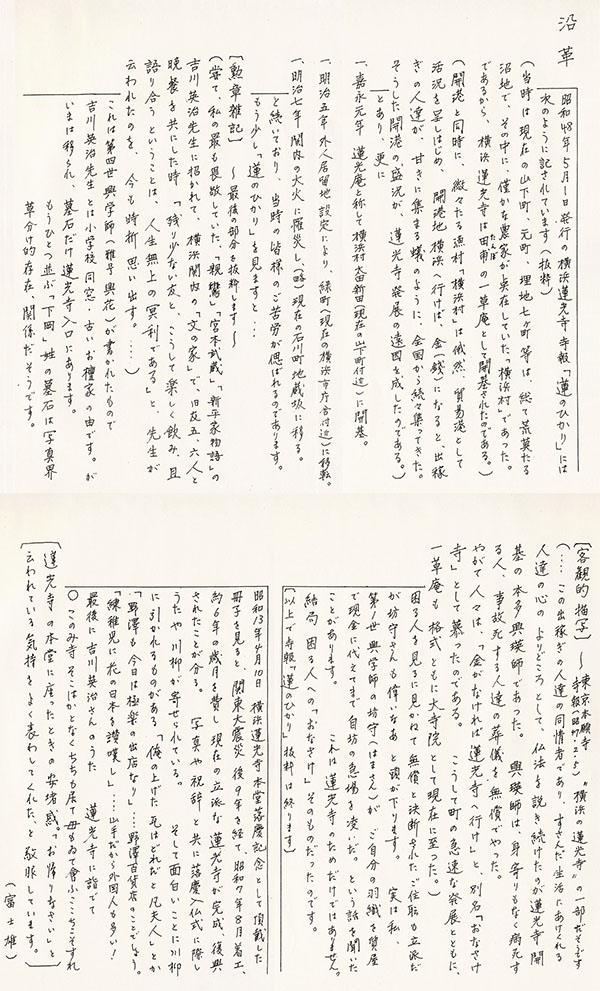 沿革
昭和48年5月1日発行の横浜蓮光寺 寺報「蓮のひかり」には
次のように記されています(抜粋)
(当時は現在の山下町、元町、埋地七ヶ町等は、総て荒莫たる
沼地で、その中に僅かな農家が点在していた「横浜村」であった。
であるから、横浜蓮光寺は田甫の一草庵として開基されたのである。)
たんぼ
(開港と同時に、微々たる漁村「横浜村」は俄然、貿易港として
活況を呈しはじめ、開港地横浜へ行けば、金(銭)になると、出稼
ぎの人達が、甘きに集まる蟻のように、全国から続々集ってきた。
そうした開港の盛況が、蓮光寺発展の遠因を成したのである。)
とあり、更に
一、嘉永元年 蓮光庵と称して横浜村太田新田(現在の山下町付近)に開基。
一、明治五年 外人居留地設定により、緑町(現在の横浜市庁舎付近)に移転。
一、明治七年 関内の大火に罹災し、(略)現在の石川町地蔵坂に移る。
と続いており、当時の皆様のご苦労が偲ばれるのであります。
もう少し「蓮のひかり」を見ますと…
[勲章雑記] 〜最後の部分を抜粋します〜
(嘗て、私の最も畏敬していた、「親鸞」「宮本武蔵」「新平家物語」の
吉川英治先生に招かれて、横浜関内の「文の家」で、旧友五、六人と
晩餐を共にした時「残り少ない友と、こうして楽しく飲み、且
語り合うということは、人生無上の冥利である」と、先生が
云われたのを、今も時折思い出す。)
これは第四世興学師(雅号興花)が書かれたもので
吉川英治先生とは小学校同窓・古いお檀家の由です。が
いまは移られ、墓石だけ蓮光寺入口にあります。
もうひとつ並ぶ「下岡」姓の墓石は写真界
草分け的存在、関係だそうです。
[客観的描写] 〜東京本願寺 寺報(昭47.2.5)「横浜の蓮光寺」の一部だそうです
(…この出稼ぎの人達の同情者であり、すさんだ生活にあけくれる
人達の心のよりどころとして、仏法を説き続けたのが蓮光寺開
基の本多興瑛師であった。 興瑛師は身寄りもなく病死す
る人、事故死する人達の葬儀を無償でやった。
やがて人々は、「金がなければ蓮光寺へ行け」と、別名「おなさけ
寺」として慕ったのである。 こうして町の急速な発展とともに、
一草庵も格式ともに大寺院として現在に至った。)
困る人を見るに見かねて無償と決断されたご住職も立派だ
が坊守さんも偉いなあ と頭が下ります。 実は私、
第八世興学師の坊守(はまさん)が、ご自分の羽織を質屋
で現金に代えてまで自坊の急場を凌いだ。という話を聞いた
ことがあります。 これは蓮光寺のためだけではありません。
結局 困る人への「おなさけ」そのものだったのです。
[以上で寺報「蓮のひかり」抜粋は終ります]
昭和13年4月10日 横浜蓮光寺本堂落慶記念として頂戴した
冊子を見ると、関東大震災後9年を経て、昭和7年8月着工、
約6年の歳月を費し 現在の立派な蓮光寺が完成、復興
されたことが分る。 写真や祝辞と共に落慶入仏式に際し
うたや川柳が寄せられている。 そして面白いことに川柳
に引かれるものがある 「俺の上げた瓦はどれだと凡夫人」とか
「野澤も今日は極楽の出店なり」……野澤百貨店のことでしょう。
「練稚児に花の日本を讃嘆し」……山手だから外国人も多い!
最後に吉川英治さんのうた 蓮光寺に詣でて
○このみ寺そこはかとなくちちも居て母もゐて會ふここちこそすれ
[蓮光寺の本堂に座ったときの安堵感。お帰りなさい」と
云われている気持をよく表わしてくれた、と敬服しています。
(富士雄)